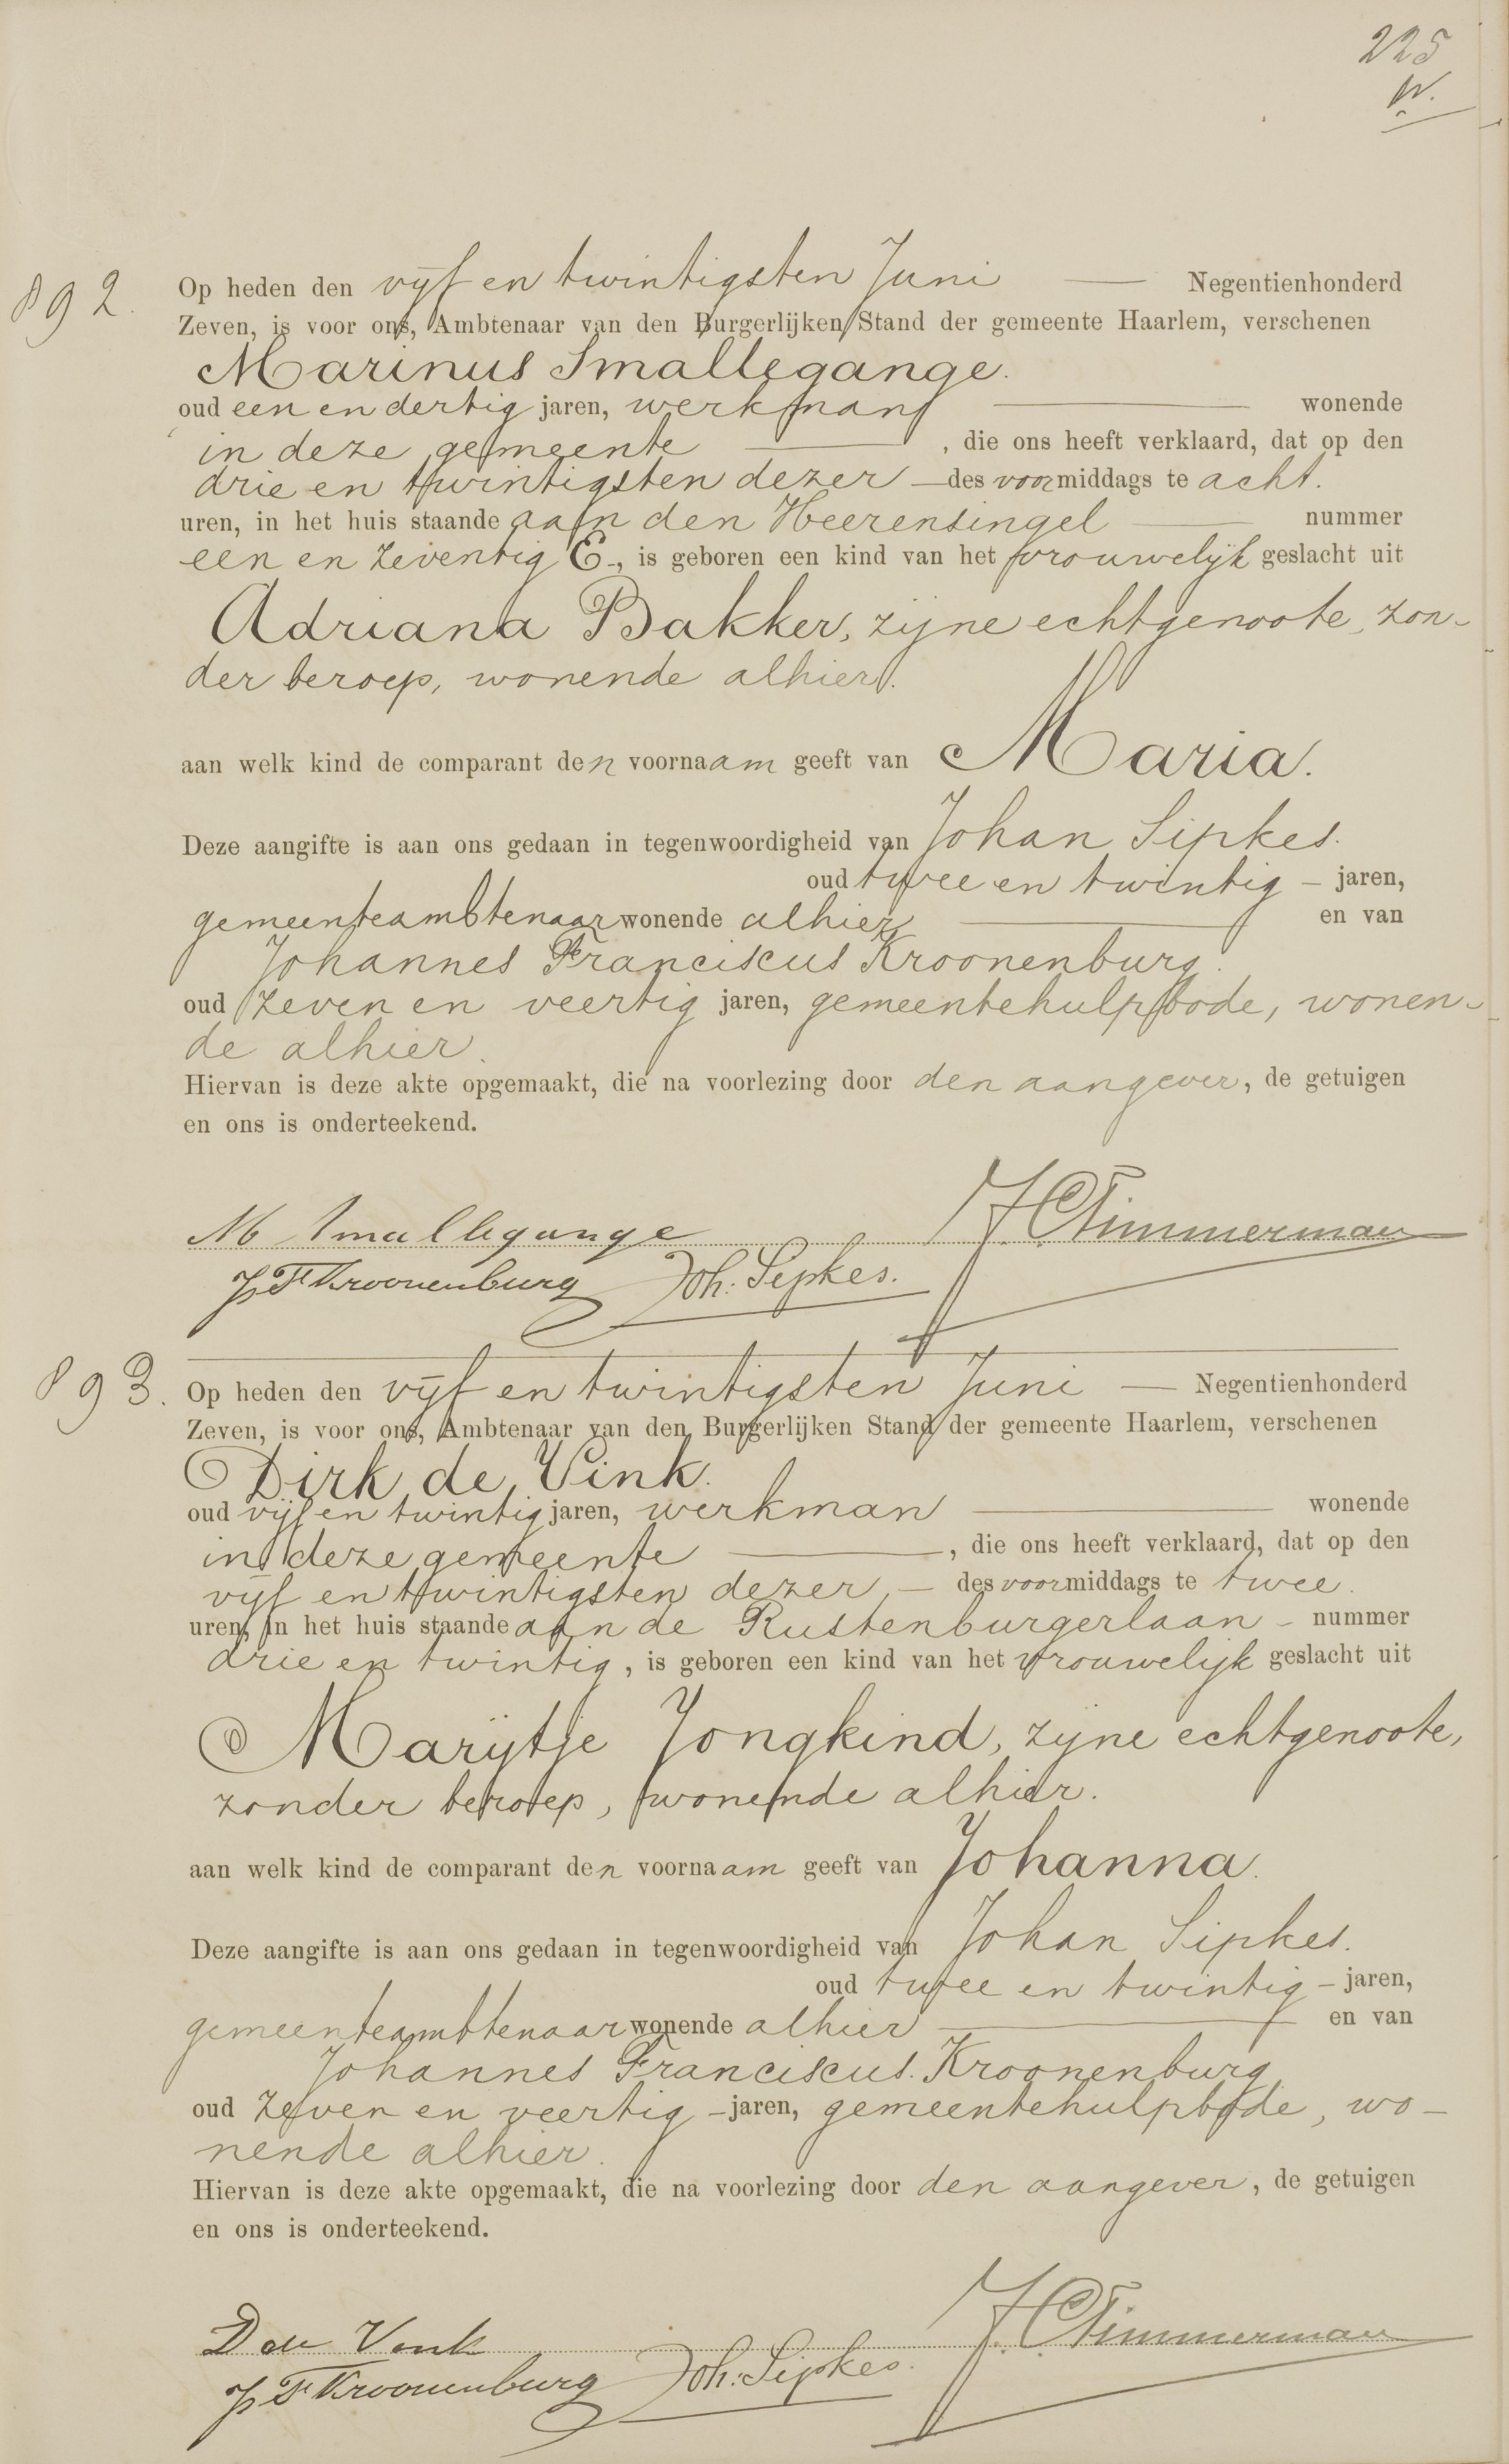 225
W.
892.
Op heden den vijf en twintigsten Juni — Negentienhonderd
Zeven, is voor ons, Ambtenaar van den Burgerlijken Stand der gemeente Haarlem, verschenen
Marinus Smallegange.
oud een en dertig jaren, werkman — wonende
in deze gemeente —, die ons heeft verklaard, dat op den
drie en twintigsten dezer — des voormiddags te acht.
uren, in het huis staande aan den Heerensingel — nummer
een en zeventig E-, is geboren een kind van het vrouwelijk geslacht uit
Adriana Bakker, zijne echtgenoote, zon-
der beroep, wonende alhier.
aan welk kind de comparant den voornaam geeft van Maria.
Deze aangifte is aan ons gedaan in tegenwoordigheid van Johan Sipkes.
oud twee en twintig — jaren,
gemeenteambtenaar wonende alhier — en van
Johannes Franciscus Kroonenburg.
oud zeven en veertig jaren, gemeentehulpbode, wonen-
de alhier.
Hiervan is deze akte opgemaakt, die na voorlezing door den aangever, de getuigen
en ons is onderteekend.
M Smallegange J. C Timmerman
J F Kroonenburg Joh: Sipkes.
893.
Op heden den vijf en twintigsten Juni — Negentienhonderd
Zeven, is voor ons, Ambtenaar van den Burgerlijken Stand der gemeente Haarlem, verschenen
Dirk de Vink.
oud vijf en twintig jaren, werkman — wonende
in deze gemeente —, die ons heeft verklaard, dat op den
vijf en twintigsten dezer — des voormiddags te twee.
uren, in het huis staande aan de Rustenburgerlaan - nummer
drie en twintig, is geboren een kind van het vrouwelijk geslacht uit
Marijtje Jongkind, zijne echtgenoote,
zonder beroep, wonende alhier.
aan welk kind de comparant den voornaam geeft van Johanna.
Deze aangifte is aan ons gedaan in tegenwoordigheid van Johan Sipkes.
oud twee en twintig — jaren,
gemeenteambtenaar wonende alhier — en van
Johannes Franciscus. Kroonenburg
oud zeven en veertig — jaren, gemeentehulpbode, wo-
nende alhier.
Hiervan is deze akte opgemaakt, die na voorlezing door den aangever, de getuigen
en ons is onderteekend.
D de Vink J. C Timmerman
J F Kroonenburg Joh: Sipkes.